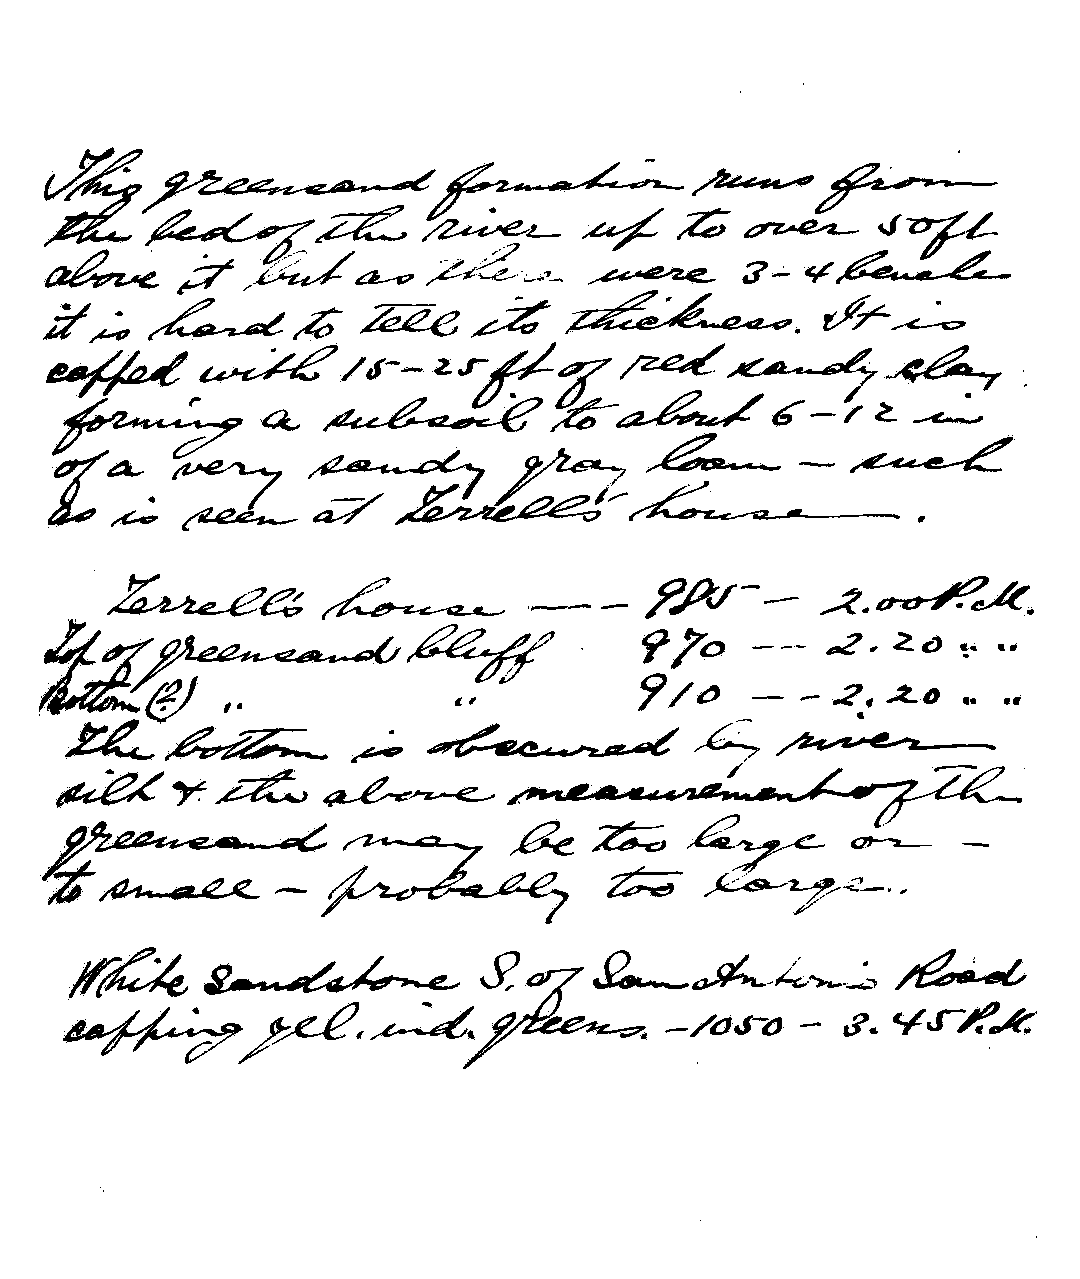 This greensand formation runs from
the bed of the river up to over 50 ft
above it but as there were 3-4 benches
it is hard to tell its thickness. It is
capped with 15-25 ft of red sandy clay
forming a subsoil to about 6-12 in
of a very sandy gray loam - such
as is seen at Terrell's house.
Terrell's house --- 985 - 2.00 P.M.
Top of greensand bluff 970 --- 2.20 " "
Bottom (?) " " 910 --- 2.20 " "
The bottom is obscured by river
silt & the above measurement of the
greensand may be too large or -
to small - probably too large.
White Sandstone S. of San Antonio Road
capping yel. ind. greens. - 1050 - 3.45 P.M.